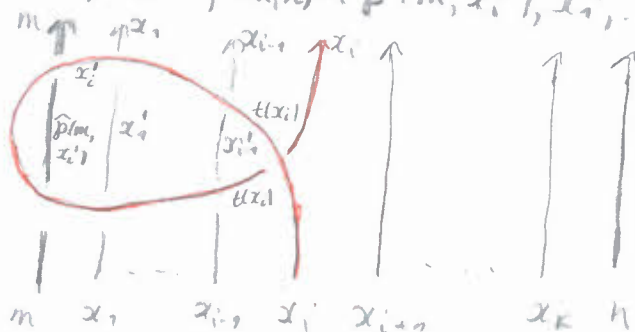 m x₁ xᵢ₋₁ xᵢ
xᵢ' t(xᵢ)
p̂(m, x₁' xᵢ₋₁'
xᵢ')
t(xᵢ)
m x₁ ..... xᵢ₋₁ xᵢ xᵢ₊₁ ..... xₖ n